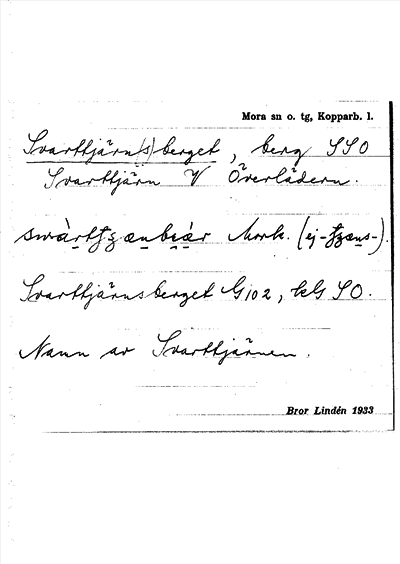 Mora sn o. tg, Kopparb. l.
Svarttjärn(s)berget, berg SSO
Svarttjärn V Överlädern.
Mork. (ej
Svarttjärnsberget G102, bls SO.
Namn av Svarttjärnen.
Bror Lindén 1933